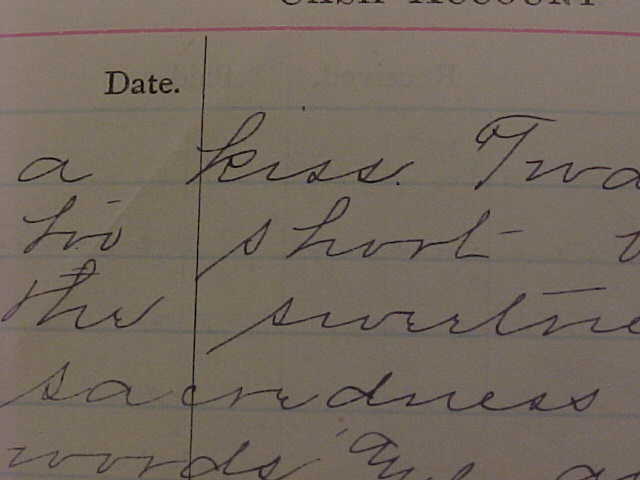 CASH ACCOUNT
Date.
a kiss. Twa
short
the sweetne
sacredness
words